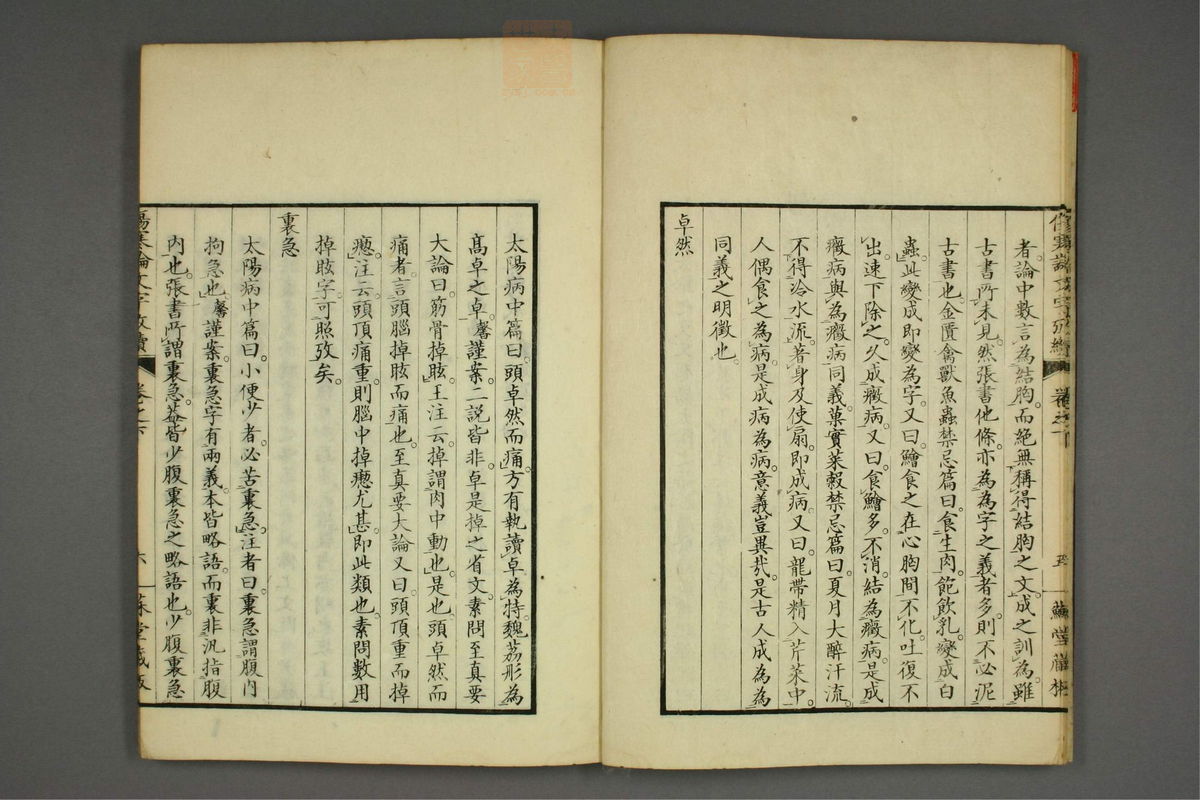 傷寒論文字攷續 卷之下 五 蘇堂藏板
者。論中數言為結胸。而絕無稱得結胸之文。成之訓為。雖
古書所未見。然張書他條。亦為為字之義者多。則不必泥
古書也。金匱禽獸魚蟲禁忌篇曰。食生肉。飽飲乳。變成白
蟲。此變成即變為字。又曰。鱠食之在心胸間。不化吐復不
出。速下除之。久成癥病。又曰。食鱠多。不消結為癥病。是成
癥病與為癥病同義。菓實菜穀禁忌篇曰。夏月大醉汗流。
不得冷水流。著身及使扇。即成病。又曰。龍帶精入芹菜中。
人偶食之為病。是成病為病。意義豈異哉。是古人成為為
同義之明徵也。
卓然
太陽病中篇曰。頭卓然而痛。方有執讀卓為特。魏荔形為
高卓之卓。馨謹案。二說皆非。卓是掉之省文。素問至真要
大論曰。筋骨掉眩。王注云。掉謂肉中動也。是也。頭卓然而
痛者。言頭腦掉眩而痛也。至真要大論又曰。頭頂重而掉
瘛。注云。頭頂痛重。則腦中掉瘛尤甚。即此類也。素問數用
掉眩字。可照攷矣。
裏急
太陽病中篇曰。小便少者。必苦裏急。注者曰。裏急謂腹內
拘急也。馨謹案。裏急字有兩義。本皆略語。而裏非汎指腹
內也。張書所謂裏急。葢皆少腹裏急之略語也。少腹裏急
傷寒論文字攷續 卷之下 六 蘇堂藏板